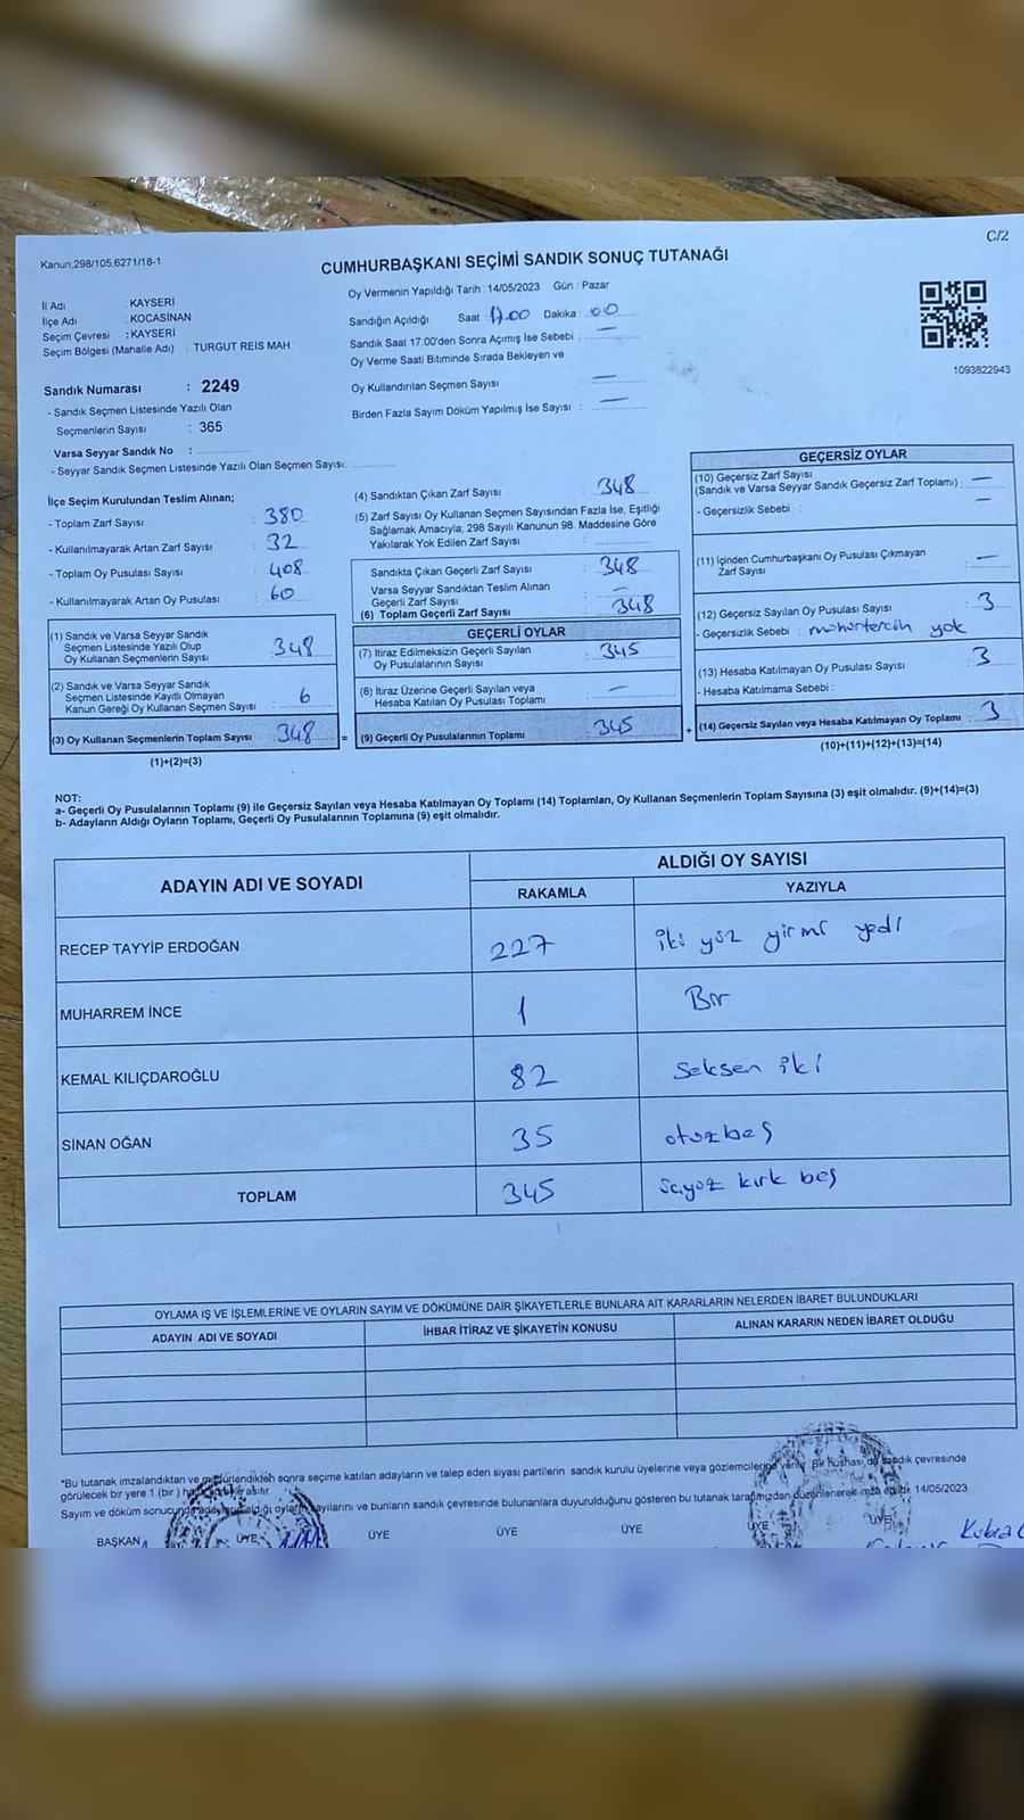 C/2
Kanun;298/105,6271/18-1
CUMHURBAŞKANI SEÇİMİ SANDIK SONUÇ TUTANAĞI
Oy Vermenin Yapıldığı Tarih : 14/05/2023 Gün : Pazar
İl Adı : KAYSERİ
İlçe Adı : KOCASİNAN
Seçim Çevresi : KAYSERİ
Seçim Bölgesi (Mahalle Adı) : TURGUT REİS MAH.
Sandığın Açıldığı Saat 17.00 Dakika : 00
Sandık Saat 17.00'den Sonra Açımış İse Sebebi : —
Oy Verme Saati Bitiminde Sırada Bekleyen ve
Oy Kullandırılan Seçmen Sayısı —
Birden Fazla Sayım Döküm Yapılmış İse Sayısı : —
1093822943
Sandık Numarası : 2249
- Sandık Seçmen Listesinde Yazılı Olan
Seçmenlerin Sayısı : 365
Varsa Seyyar Sandık No :
- Seyyar Sandık Seçmen Listesinde Yazılı Olan Seçmen Sayısı:
İlçe Seçim Kurulundan Teslim Alınan;
- Toplam Zarf Sayısı : 380
- Kullanılmayarak Artan Zarf Sayısı : 32
- Toplam Oy Pusulası Sayısı : 408
- Kullanılmayarak Artan Oy Pusulası : 60
(1) Sandık ve Varsa Seyyar Sandık
Seçmen Listesinde Yazılı Olup
Oy Kullanan Seçmenlerin Sayısı 348
(2) Sandık ve Varsa Seyyar Sandık
Seçmen Listesinde Kayıtlı Olmayan
Kanun Gereği Oy Kullanan Seçmen Sayısı : 6
(3) Oy Kullanan Seçmenlerin Toplam Sayısı 348
(1)+(2)=(3)
(4) Sandıktan Çıkan Zarf Sayısı 348
(5) Zarf Sayısı Oy Kullanan Seçmen Sayısından Fazla İse, Eşitliği
Sağlamak Amacıyla, 298 Sayılı Kanunun 98. Maddesine Göre
Yakılarak Yok Edilen Zarf Sayısı
Sandıkta Çıkan Geçerli Zarf Sayısı : 348
Varsa Seyyar Sandıktan Teslim Alınan
Geçerli Zarf Sayısı : —
(6) Toplam Geçerli Zarf Sayısı : 348
GEÇERLİ OYLAR
(7) İtiraz Edilmeksizin Geçerli Sayılan
Oy Pusulalarının Sayısı : 345
(8) İtiraz Üzerine Geçerli Sayılan veya
Hesaba Katılan Oy Pusulası Toplamı : —
= (9) Geçerli Oy Pusulalarının Toplamı 345
GEÇERSİZ OYLAR
(10) Geçersiz Zarf Sayısı
(Sandık ve Varsa Seyyar Sandık Geçersiz Zarf Toplamı) : —
- Geçersizlik Sebebi : —
(11) İçinden Cumhurbaşkanı Oy Pusulası Çıkmayan
Zarf Sayısı : —
(12) Geçersiz Sayılan Oy Pusulası Sayısı : 3
- Geçersizlik Sebebi : yok
(13) Hesaba Katılmayan Oy Pusulası Sayısı : 3
- Hesaba Katılmama Sebebi :
+ (14) Geçersiz Sayılan veya Hesaba Katılmayan Oy Toplamı 3
(10)+(11)+(12)+(13)=(14)
NOT:
a- Geçerli Oy Pusulalarının Toplamı (9) ile Geçersiz Sayılan veya Hesaba Katılmayan Oy Toplamı (14) Toplamları, Oy Kullanan Seçmenlerin Toplam Sayısına (3) eşit olmalıdır. (9)+(14)=(3)
b- Adayların Aldığı Oyların Toplamı, Geçerli Oy Pusulalarının Toplamına (9) eşit olmalıdır.
ADAYIN ADI VE SOYADI
ALDIĞI OY SAYISI
RAKAMLA YAZIYLA
RECEP TAYYİP ERDOĞAN 227 iki yüz yirmi yedi
MUHARREM İNCE 1 Bir
KEMAL KILIÇDAROĞLU 82 Seksen iki
SİNAN OĞAN 35 otuzbeş
TOPLAM 345 üçyüz kırk beş
OYLAMA İŞ VE İŞLEMLERİNE VE OYLARIN SAYIM VE DÖKÜMÜNE DAİR ŞİKAYETLERLE BUNLARA AİT KARARLARIN NELERDEN İBARET BULUNDUKLARI
ADAYIN ADI VE SOYADI İHBAR İTİRAZ VE ŞİKAYETİN KONUSU ALINAN KARARIN NEDEN İBARET OLDUĞU
*Bu tutanak imzalandıktan ve mühürlendikten sonra seçime katılan adayların ve talep eden siyasi partilerin sandık kurulu üyelerine veya gözlemcilerine verilir. Bir nüshası da sandık çevresinde
görülecek bir yere 1 (bir)
Sayım ve döküm sonucunda adayların aldığı oyların sayılarını ve bunların sandık çevresinde bulunanlara duyurulduğunu gösteren bu tutanak tarafımızdan düzenlenerek imza edildi. 14/05/2023
BAŞKAN ÜYE ÜYE ÜYE ÜYE ÜYE ÜYE